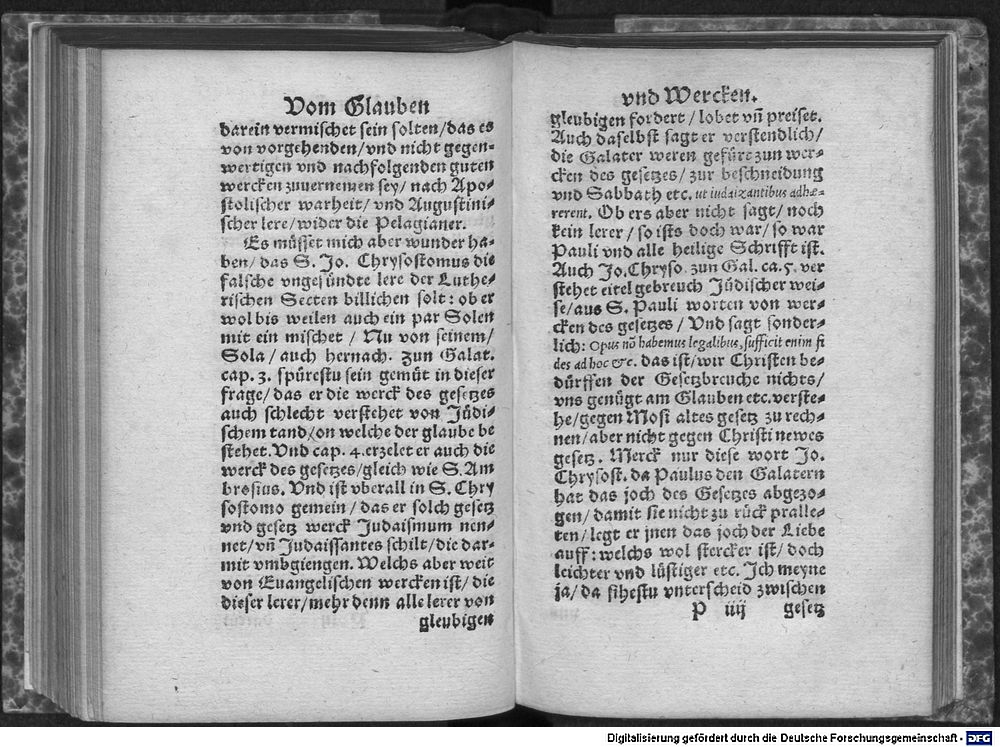 Vom Glauben
darein vermischet sein solten/das es
von vorgehenden/vnd nicht gegen-
wertigen vnd nachfolgenden guten
wercken zuuernemen sey/ nach Apo-
stolischer warheit/ vnd Augustini-
scher lere/wider die Pelagianer.
Es müsset mich aber wunder ha-
ben/ das S. Jo. Chrysostomus die
falsche vngesündte lere der Luthe-
rischen Secten billichen solt: ob er
wol bis weilen auch ein par Solen
mit ein mischet / Nu von seinem/
Sola/ auch hernach. Zun Galat.
cap. 3. spürestu sein gemüt in dieser
frage/ das er die werck des gesetzes
auch schlecht verstehet von Jüdi-
schem tand/on welche der glaube be
stehet. Vnd cap. 4. erzelet er auch die
werck des gesetzes/gleich wie S. Am
brosius. Vnd ist vberall in S. Chry
sostomo gemein/ das er solch gesetz
vnd gesetz werck Judaismum nen-
net/vn̄ Judaissantes schilt/die dar-
mit vmbgiengen. Welchs aber weit
von Euangelischen wercken ist/ die
dieser lerer/mehr denn alle lerer von
gleubigen
vnd Wercken.
gleubigen fordert / lobet vn̄ preiset.
Auch daselbst sagt er verstendlich/
die Galater weren gefürt zun wer-
cken des gesetzes/ zur beschneidung
vnd Sabbath etc. ut iudaizantibus adhæ-
rerent. Ob ers aber nicht sagt/ noch
kein lerer / so ists doch war/ so war
Pauli vnd alle heilige Schrifft ist.
Auch Jo. Chryso. zun Gal. ca. 5. ver
stehet eitel gebreuch Jüdischer wei-
se/aus S. Pauli worten von wer-
cken des gesetzes / Vnd sagt sonder-
lich: Opus nō habemus legalibus, sufficit enim fi
des ad hoc &c. das ist/ wir Christen be-
dürffen der Gesetzbreuche nichts/
vns genügt am Glauben etc. verste-
he/gegen Mosi altes gesetz zu rech-
nen/ aber nicht gegen Christi newes
gesetz. Merck nur diese wort Jo.
Chrysost. da Paulus den Galatern
hat das joch des Gesetzes abgezo-
gen/ damit sie nicht zu rück pralle-
ten/ legt er jnen das joch der Liebe
auff: welchs wol stercker ist/ doch
leichter vnd lüstiger etc. Ich meyne
ja/ da sihestu vnterscheid zwischen
P iiij gesetz
Digitalisierung gefördert durch die Deutsche Forschungsgemeinschaft - DFG